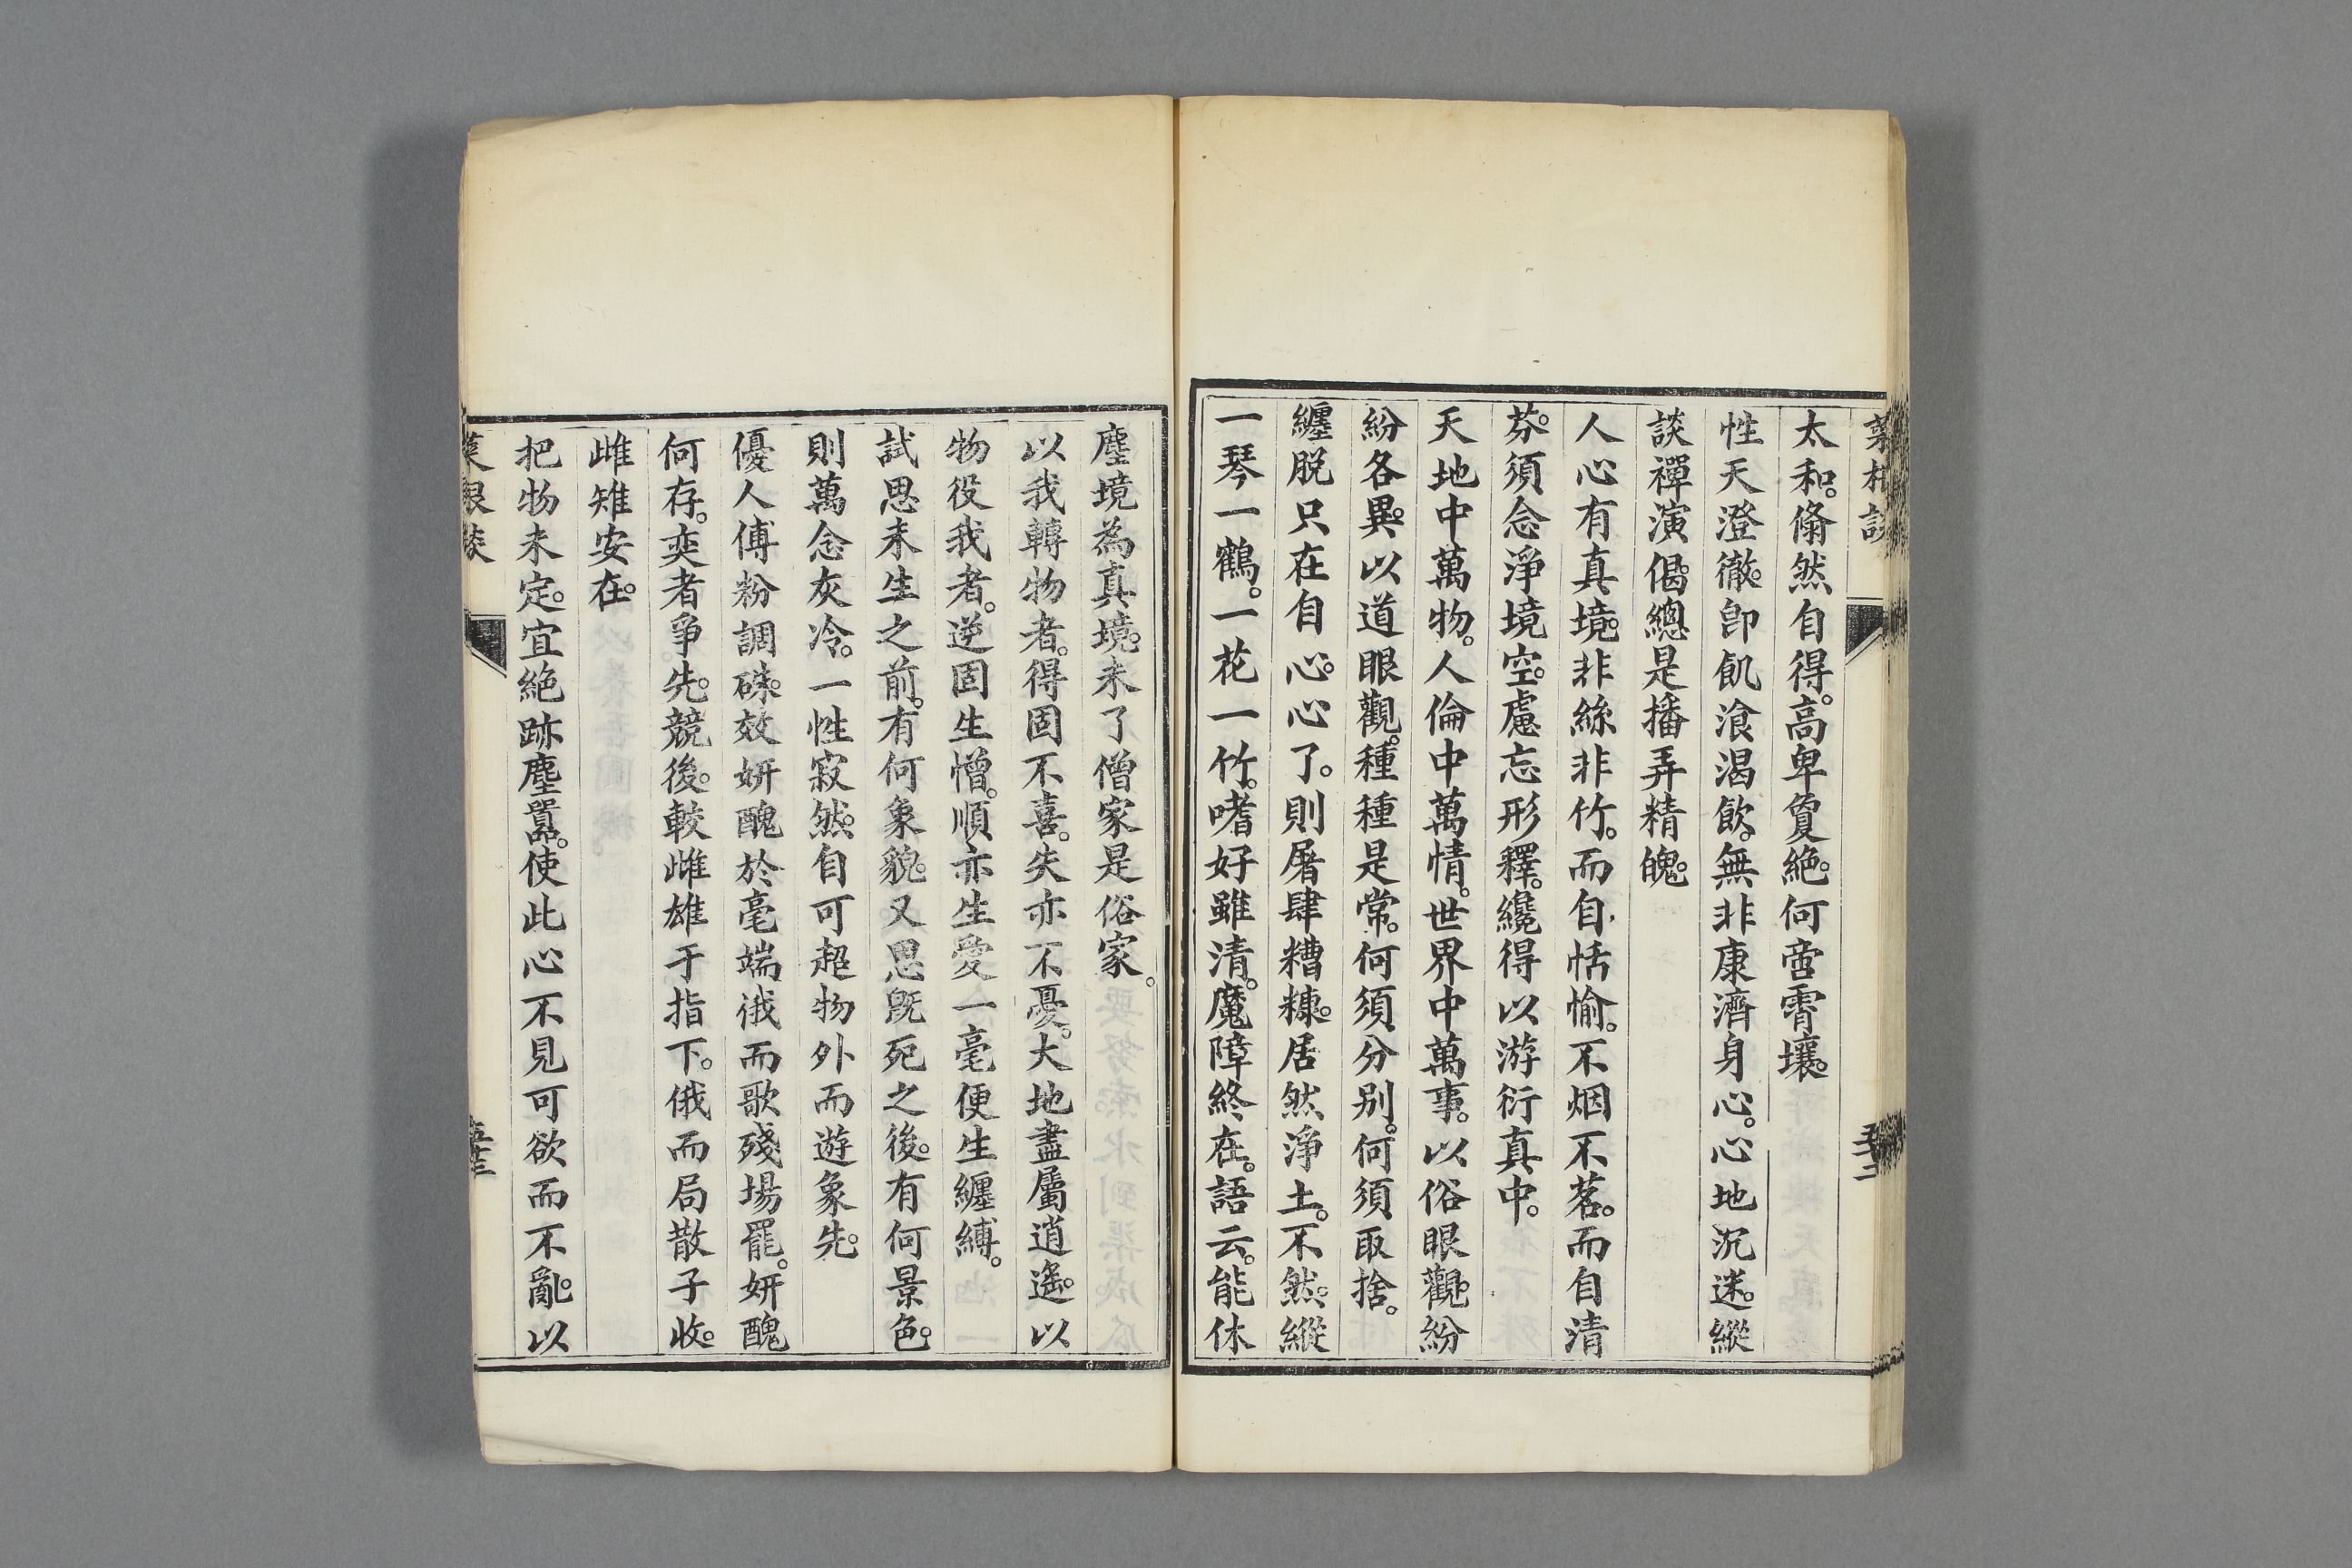 太和。翛然自得。高卑敻絶。何啻霄壤。
性天澄徹。卽飢湌渴飲。無非康濟身心。心地沉迷。縱
談禪演偈。總是播弄精魄。
人心有真境。非絲非竹。而自恬愉。不烟不茗。而自清
芬。須念淨境空。慮忘形釋。纔得以游衍真中。
天地中萬物。人倫中萬情。世界中萬事。以俗眼觀。紛
紛各異。以道眼觀。種種是常。何須分別。何須取捨。
纏脱只在自心。心了。則屠肆糟糠。居然淨土。不然。縱
一琴一鶴。一花一竹。嗜好雖清。魔障終在。語云。能休
塵境為真境。未了僧家是俗家。
以我轉物者。得固不喜。失亦不憂。大地盡屬逍遙。以
物役我者。逆固生憎。順亦生愛。一毫便生纏縛。
試思未生之前。有何象貌。又思既死之後。有何景色。
則萬念灰冷。一性寂然。自可超物外而遊象先。
優人傅粉調硃。效妍醜於毫端。俄而歌殘場罷。妍醜
何存。奕者爭先。競後。較雌雄于指下。俄而局散子收。
雌雄安在。
把物未定。宜絶跡塵囂。使此心不見可欲而不亂。以
菜根談
五十三